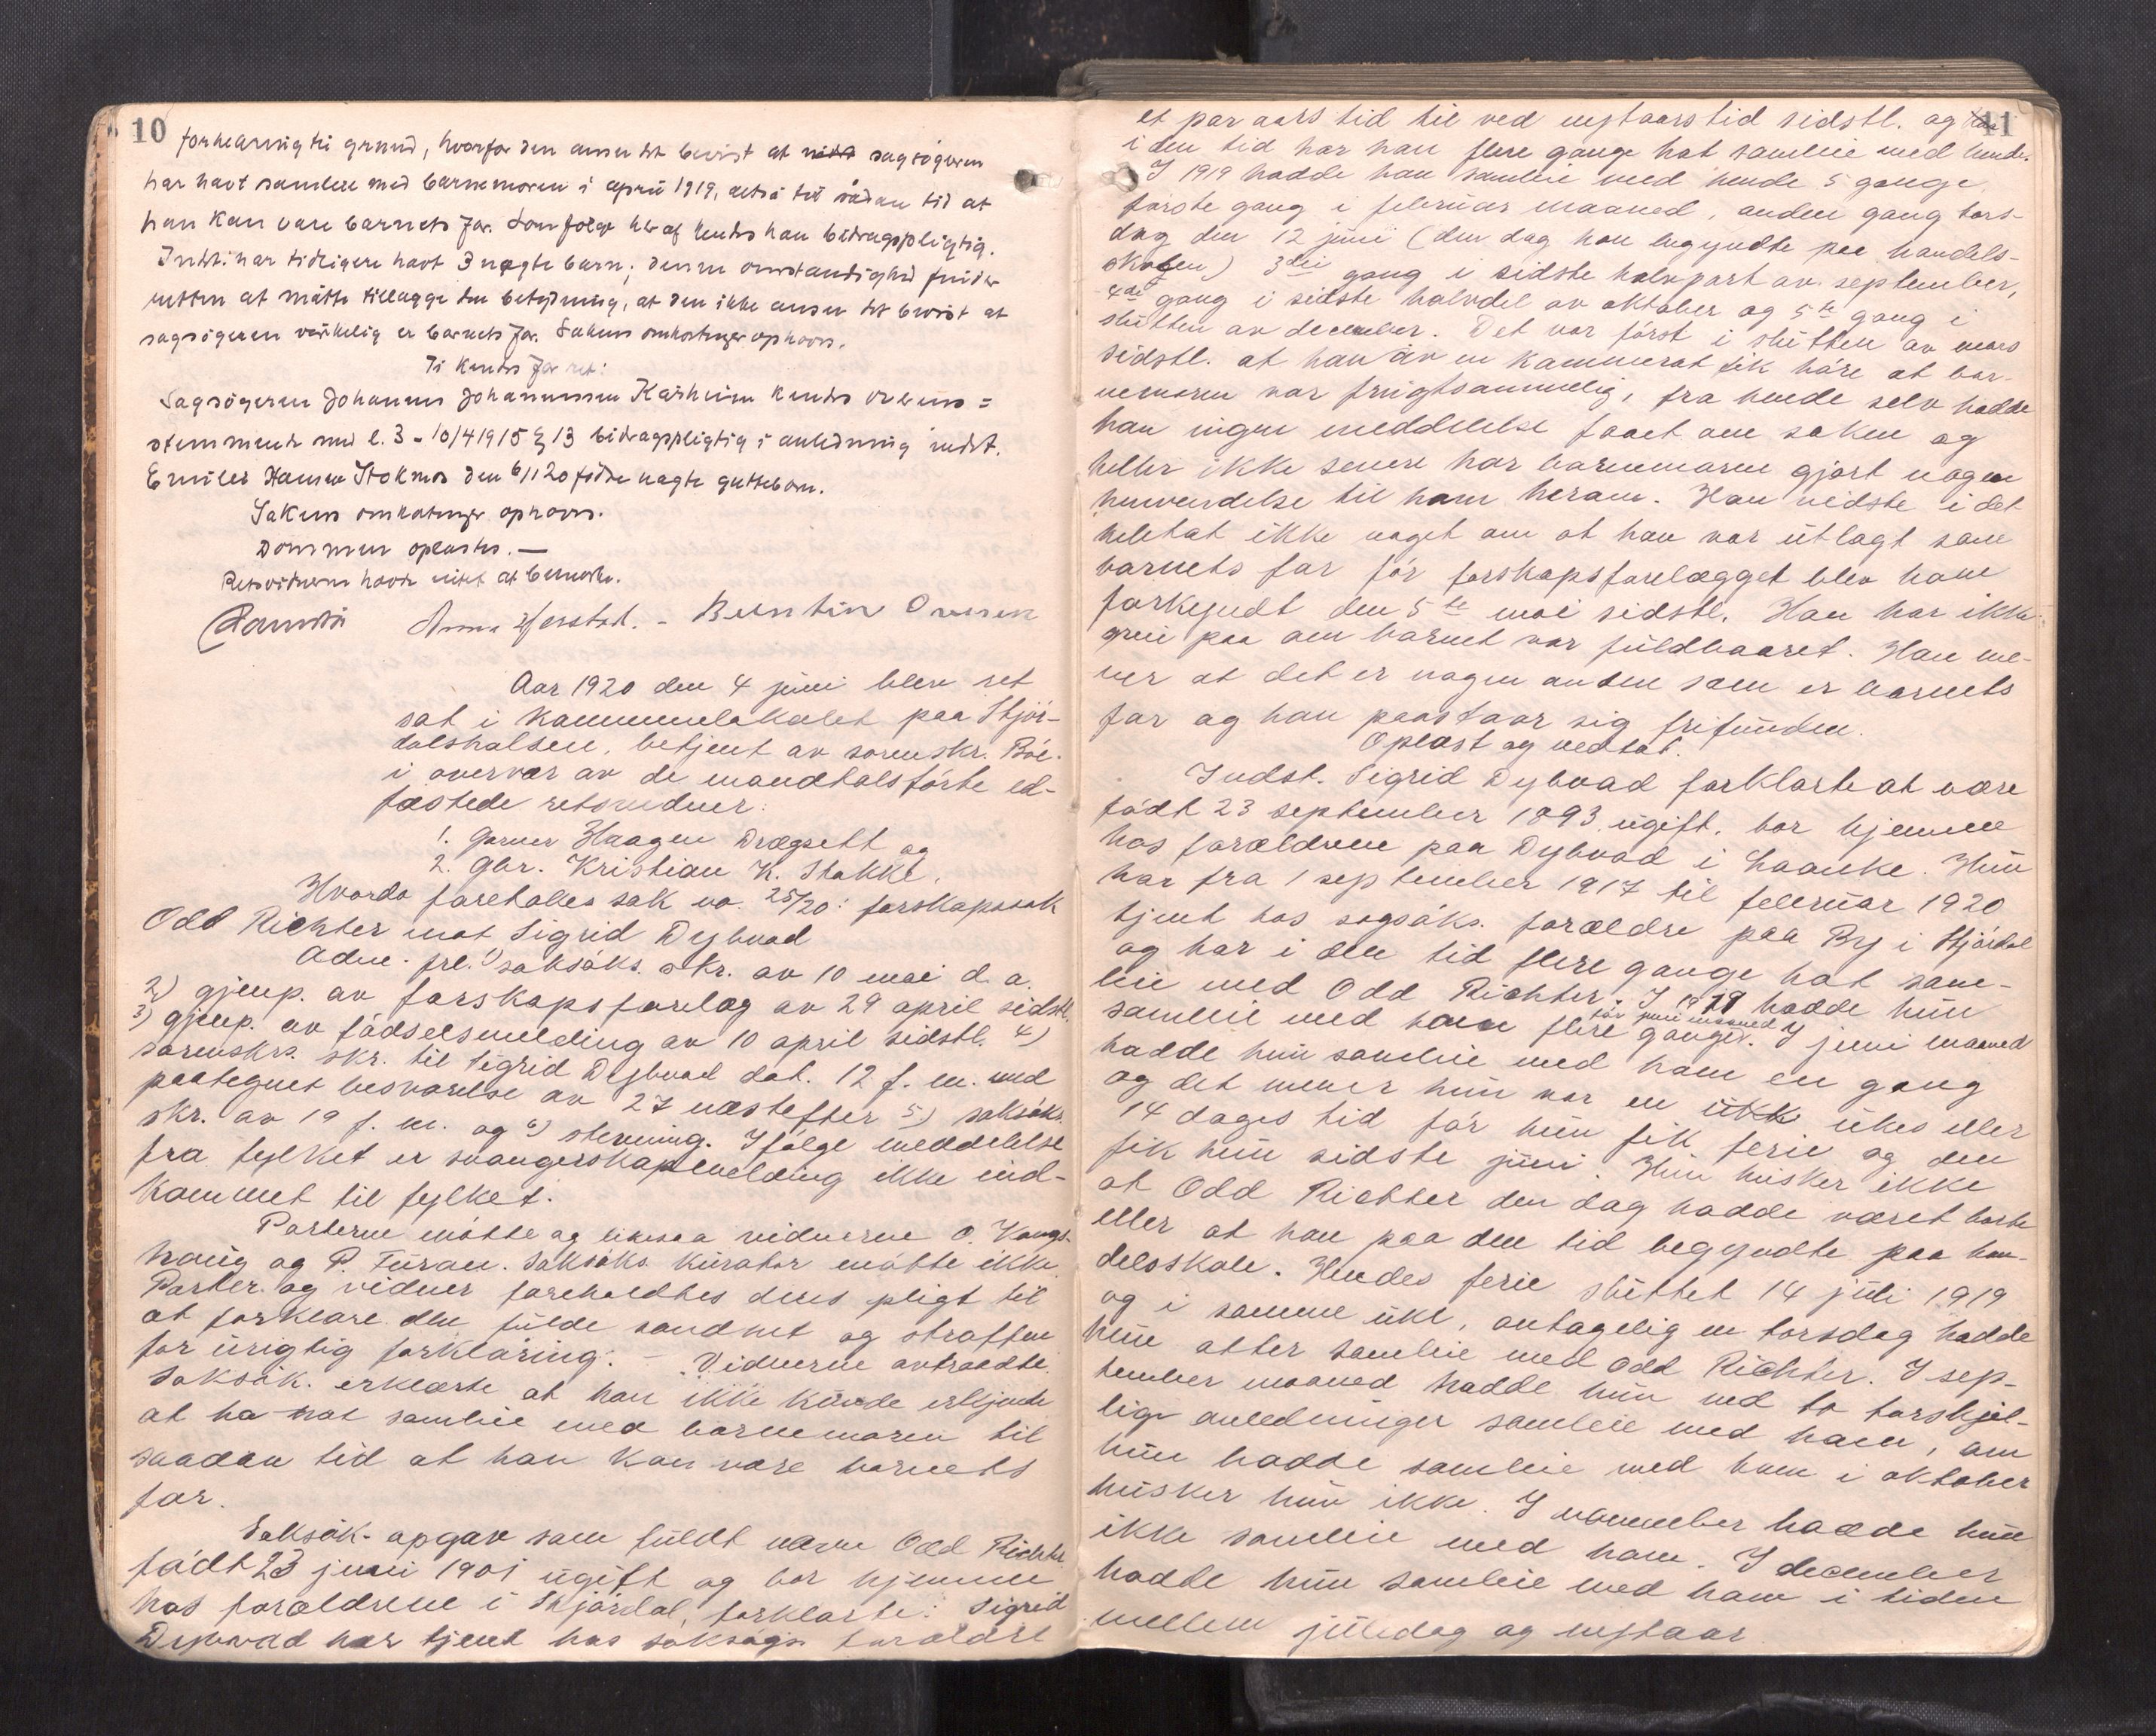 10
forklaring til grund, hvorfor den anser det bevist at sagsøgeren
har havt samleie med barnemoren i april 1919, altså til sådan tid at
han kan være barnets far. Som følge herav kendes han bidragspligtig.
Indst. har tidligere havt 3 uægte barn; denne omstændighed finder
retten at måtte tillægge den betydning, at den ikke anser det bevist at
sagsøgeren virkelig er barnets far. Sakens omkostninger ophæves.
Ti kendes for ret:
Sagsøgeren Johannes Johannessen Kårheim kendes overens=
stemmende med l. 3 - 10/4 1915 § 13 bidragspligtig i anledning indst.
Emilie Hansen Stokmos den 6/1 20 fødte uægte guttebarn.
Sakens omkostninger ophæves.
Dommen oplæstes. —
Retsvidnerne havde intet at bemerke.
Anna Hjerstad. - Berntin Ovesen
Aar 1920 den 4 juni blev ret
sat i kommunelokalet paa Stjør-
dalshalsen, betjent av sorenskr. Bøe.
i overvær av de mandtalsførte ed-
fæstede retsvidner:
1. Garver Haagen Drægsett og
2. Gbr. Kristian K. Stokke.
Hvorda foretoles sak no. 25/20: farskapssak
Odd Richter mot Sigrid Dybvad
Adm. frl. 1) saksøks. skr. av 10 mai d. a.
2) gjenp. av farskapsforelæg av 29 april sidstl.
3) gjenp. av fødselsmelding av 10 april sidstl. 4)
sorenskrs. skr. til Sigrid Dybvad dat. 12 f. m. med
paategnet besvarelse av 27 næstefter 5) saksøks.
skr. av 19 f. m. og 6) stevning. Ifølge meddelelse
fra fylket er svangerskapmelding ikke ind-
kommet til fylket.
Parterne møtte og likesaa vidnerne O. Vangs-
haug og P. Furan. Saksøks. kurator møtte ikke.
Parter og vidner foreholdtes deres pligt til
at forklare den fulde sandhet og straffen
for urigtig forklaring. — Vidnerne avtraadte.
Saksøk. erklærte at han ikke kunde erkjende
at ha hat samleie med barnemoren til
saadan tid at han kan være barnets
far.
Saksøk. opgav som fuldt navn Odd Richter
født 23 juni 1901 ugift og bor hjemme
hos forældrene i Stjørdal, forklarte: Sigrid
Dybvad har tjent hos saksøgs. forældre
11
et par aars tid til ved nytaarstid sidstl. og
i den tid har han flere gange hat samleie med hende.
I 1919 hadde han samleie med hende 5 gange,
første gang i februar maaned, anden gang tors-
dag den 12 juni (den dag han begyndte paa handels-
skolen) 3die gang i sidste halvpart av september,
4de gang i sidste halvdel av oktober og 5te gang i
slutten av december. Det var først i slutten av mars
sidstl. at han av en kammerat fik høre at bar-
nemoren var frugtsommelig, fra hende selv hadde
han ingen meddelelse faaet om saken og
heller ikke senere har barnemoren gjort nogen
henvendelse til ham herom. Han vidste i det
heletat ikke noget om at han var utlagt som
barnets far før farskapsforelægget blev ham
forkyndt den 5te mai sidstl. Han har ikke
greie paa om barnet var fuldbaaret. Han me-
ner at det er nogen anden som er barnets
far og han paastaar sig frifunden.
Oplæst og vedtat.
Indst. Sigrid Dybvad forklarte at være
født 23 september 1893, ugift, bor hjemme
hos forældrene paa Dybvad i Laanke. Hun
har fra 1 september 1917 til februar 1920
tjent hos sagsøks. forældre paa By i Stjørdal
og har i den tid flere gange hat sam-
leie med Odd Richter. I 1919 hadde hun
samleie med ham flere ganger før juni maaned. I juni maaned
hadde hun samleie med ham en gang
og det mener hun var en ukes eller
14 dages tid før hun fik ferie og den
fik hun sidste juni. Hun husker ikke
at Odd Richter den dag hadde været borte
eller at han paa den tid begyndte paa han-
delsskole. Hendes ferie sluttet 14 juli 1919
og i samme uke, antagelig en torsdag hadde
hun atter samleie med Odd Richter. I sep-
tember maaned hadde hun ved to forskjel-
lige anledninger samleie med ham, om
hun hadde samleie med ham i oktober
husker hun ikke. I november hadde hun
ikke samleie med ham. I december
hadde hun samleie med ham i tiden
mellem juledag og nytaar